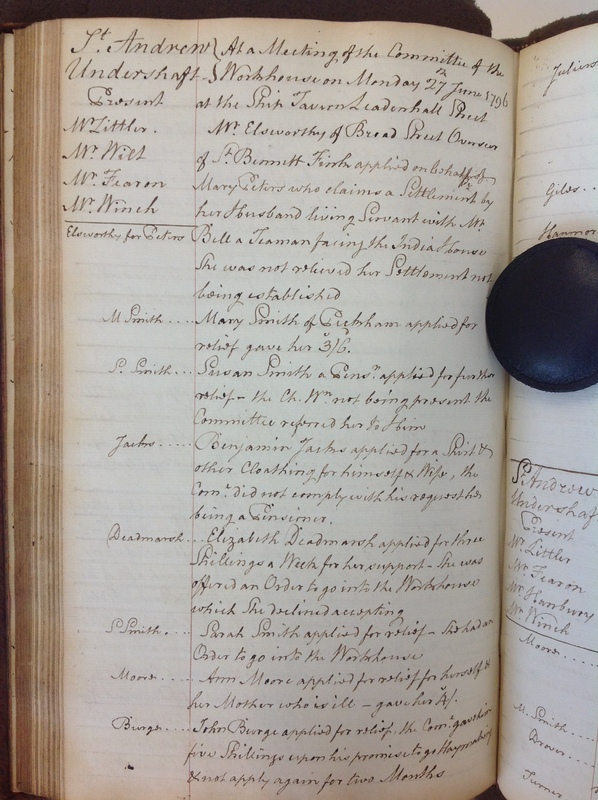 St. Andrew } At a Meeting of the Committee of the
Undershaft } Workhouse on Monday 27th June 1796
Present at the Ship Tavern Leadenhall Street
Mr Littler. Mr. Elsworthy of Broad Street Overseer
Mr. Wilt of St. Bennett Finch applied on behalf of
Mr. Fearon Mary Peters who claims a Settlement by
Mr. Winch her Husband living Servant with Mr.
Elsworthy for Peters Bell a Teaman facing the India House
She was not relieved her Settlement not
being established
M Smith .... Mary Smith of Peckham applied for
relief gave her 3/6.
S. Smith ... Susan Smith a Pensr. applied for further
relief - the Ch. Wn. not being present the
Committee referred her to Him
Jacks ..... Benjamin Jacks applied for a Shirt &
other Cloathing for himself & Wife, the
Comee. did not comply with his request he
being a Pensioner.
Deadmarsh ... Elizabeth Deadmarsh applied for three
Shillings a Week for her support - She was
offered an Order to go into the Workhouse
which She declined accepting
S Smith .... Sarah Smith applied for relief - She had an
Order to go into the Workhouse
Moore ..... Ann Moore applied for relief for herself &
her Mother who is ill - gave her 4/.
Burge .... John Burge applied for relief, the Comee. gave him
five Shillings upon his promise to go Haymaking
& not apply again for two Months
Juliers
Giles ..
St. Andrew
Undershaft
Present
Mr. Littler
Mr. Fearon
Mr. Hanbury
Mr. Winch
Moore ....
M. Smith ....
Drover ....
Turner